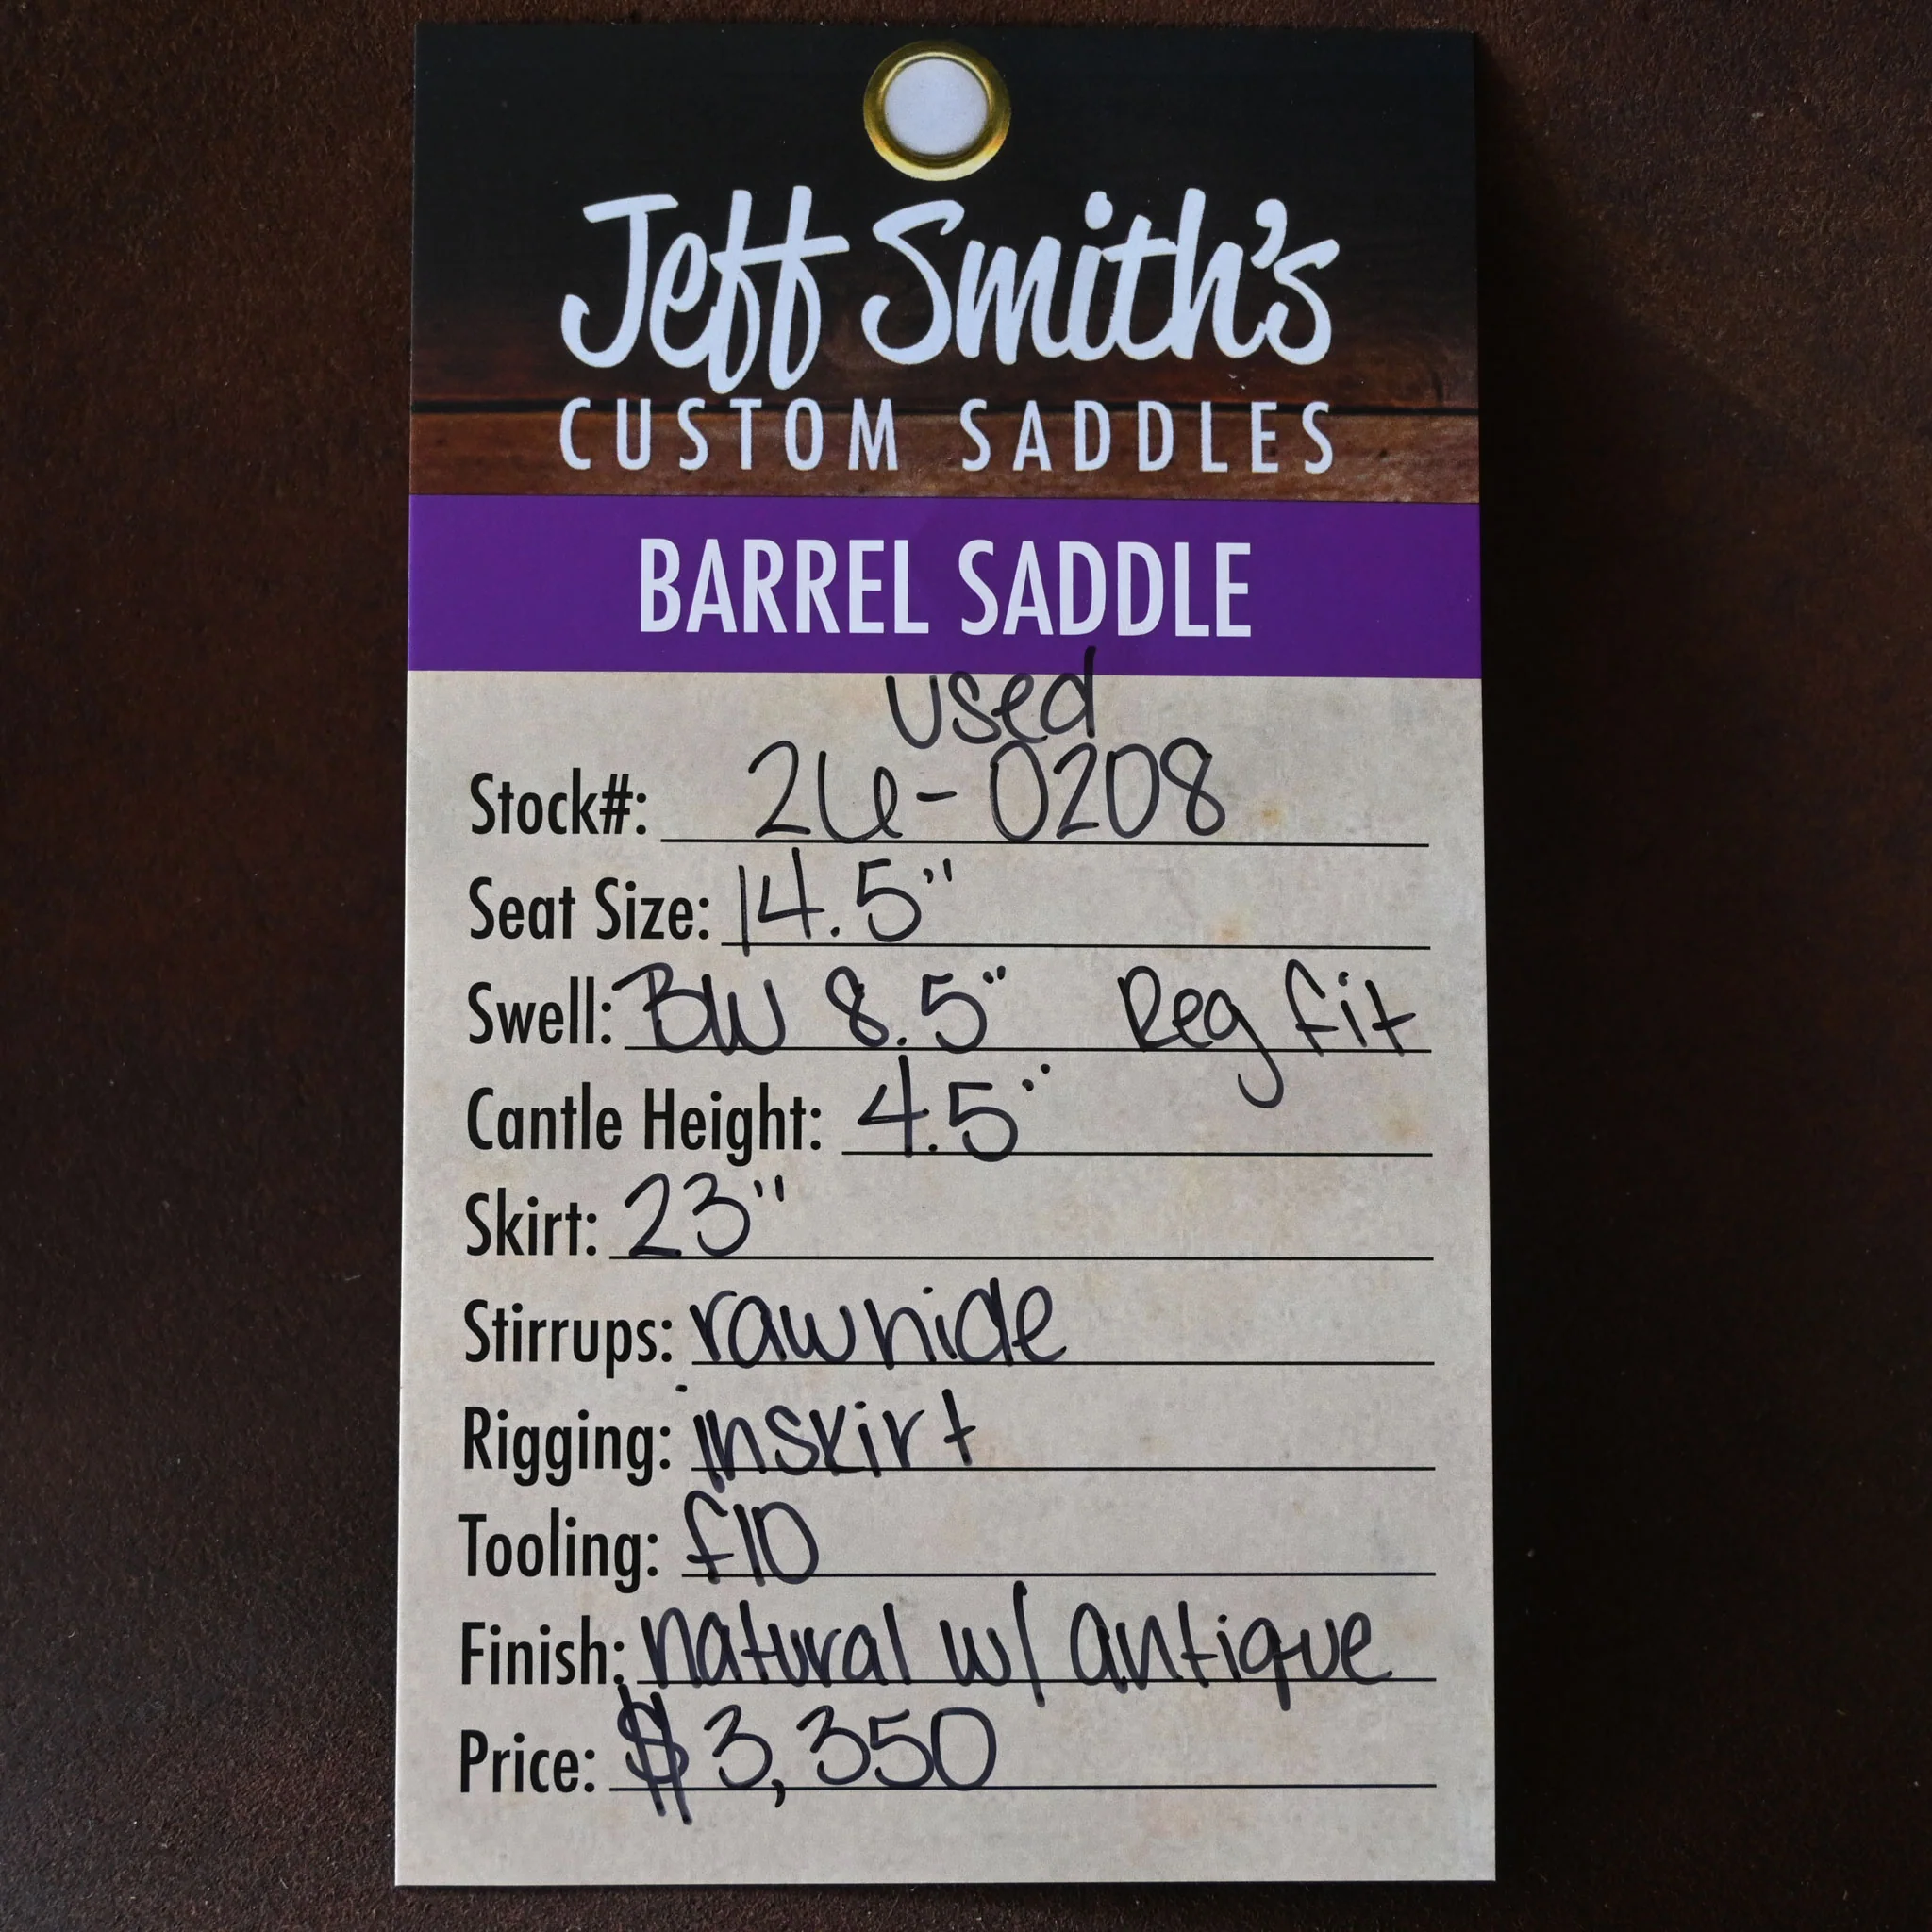 Jeff Smith's
CUSTOM SADDLES
BARREL SADDLE
Used
Stock#: 26-0208
Seat Size: 14.5"
Swell: BW 8.5" Reg fit
Cantle Height: 4.5"
Skirt: 23"
Stirrups: rawhide
Rigging: inskirt
Tooling: f10
Finish: natural w/ antique
Price: $3,350